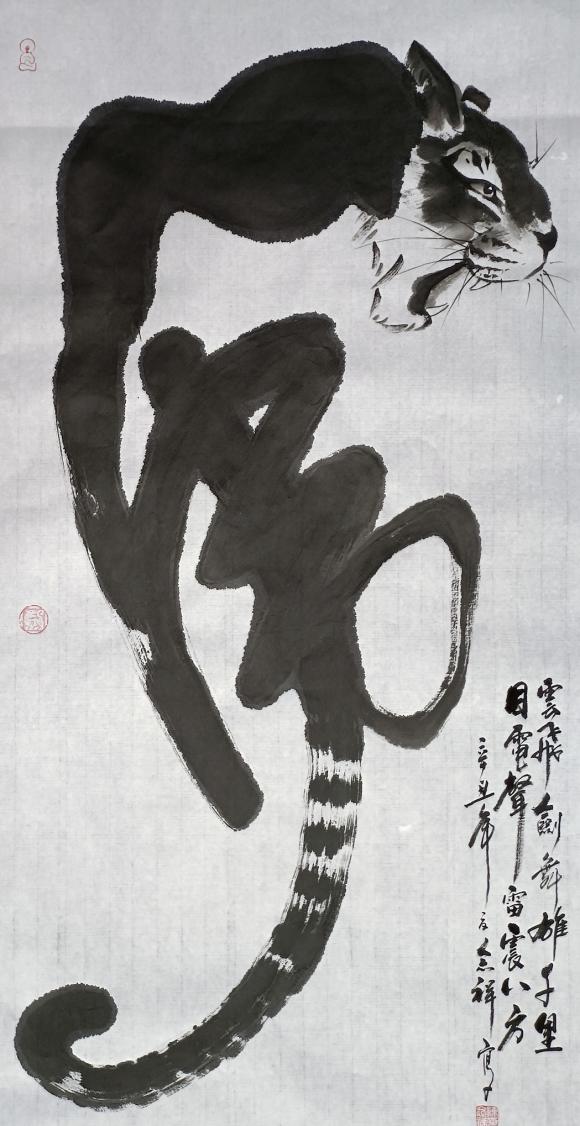 虎
雲飛劍舞雄千里
目電聲雷震八方
辛丑年 念祥寫